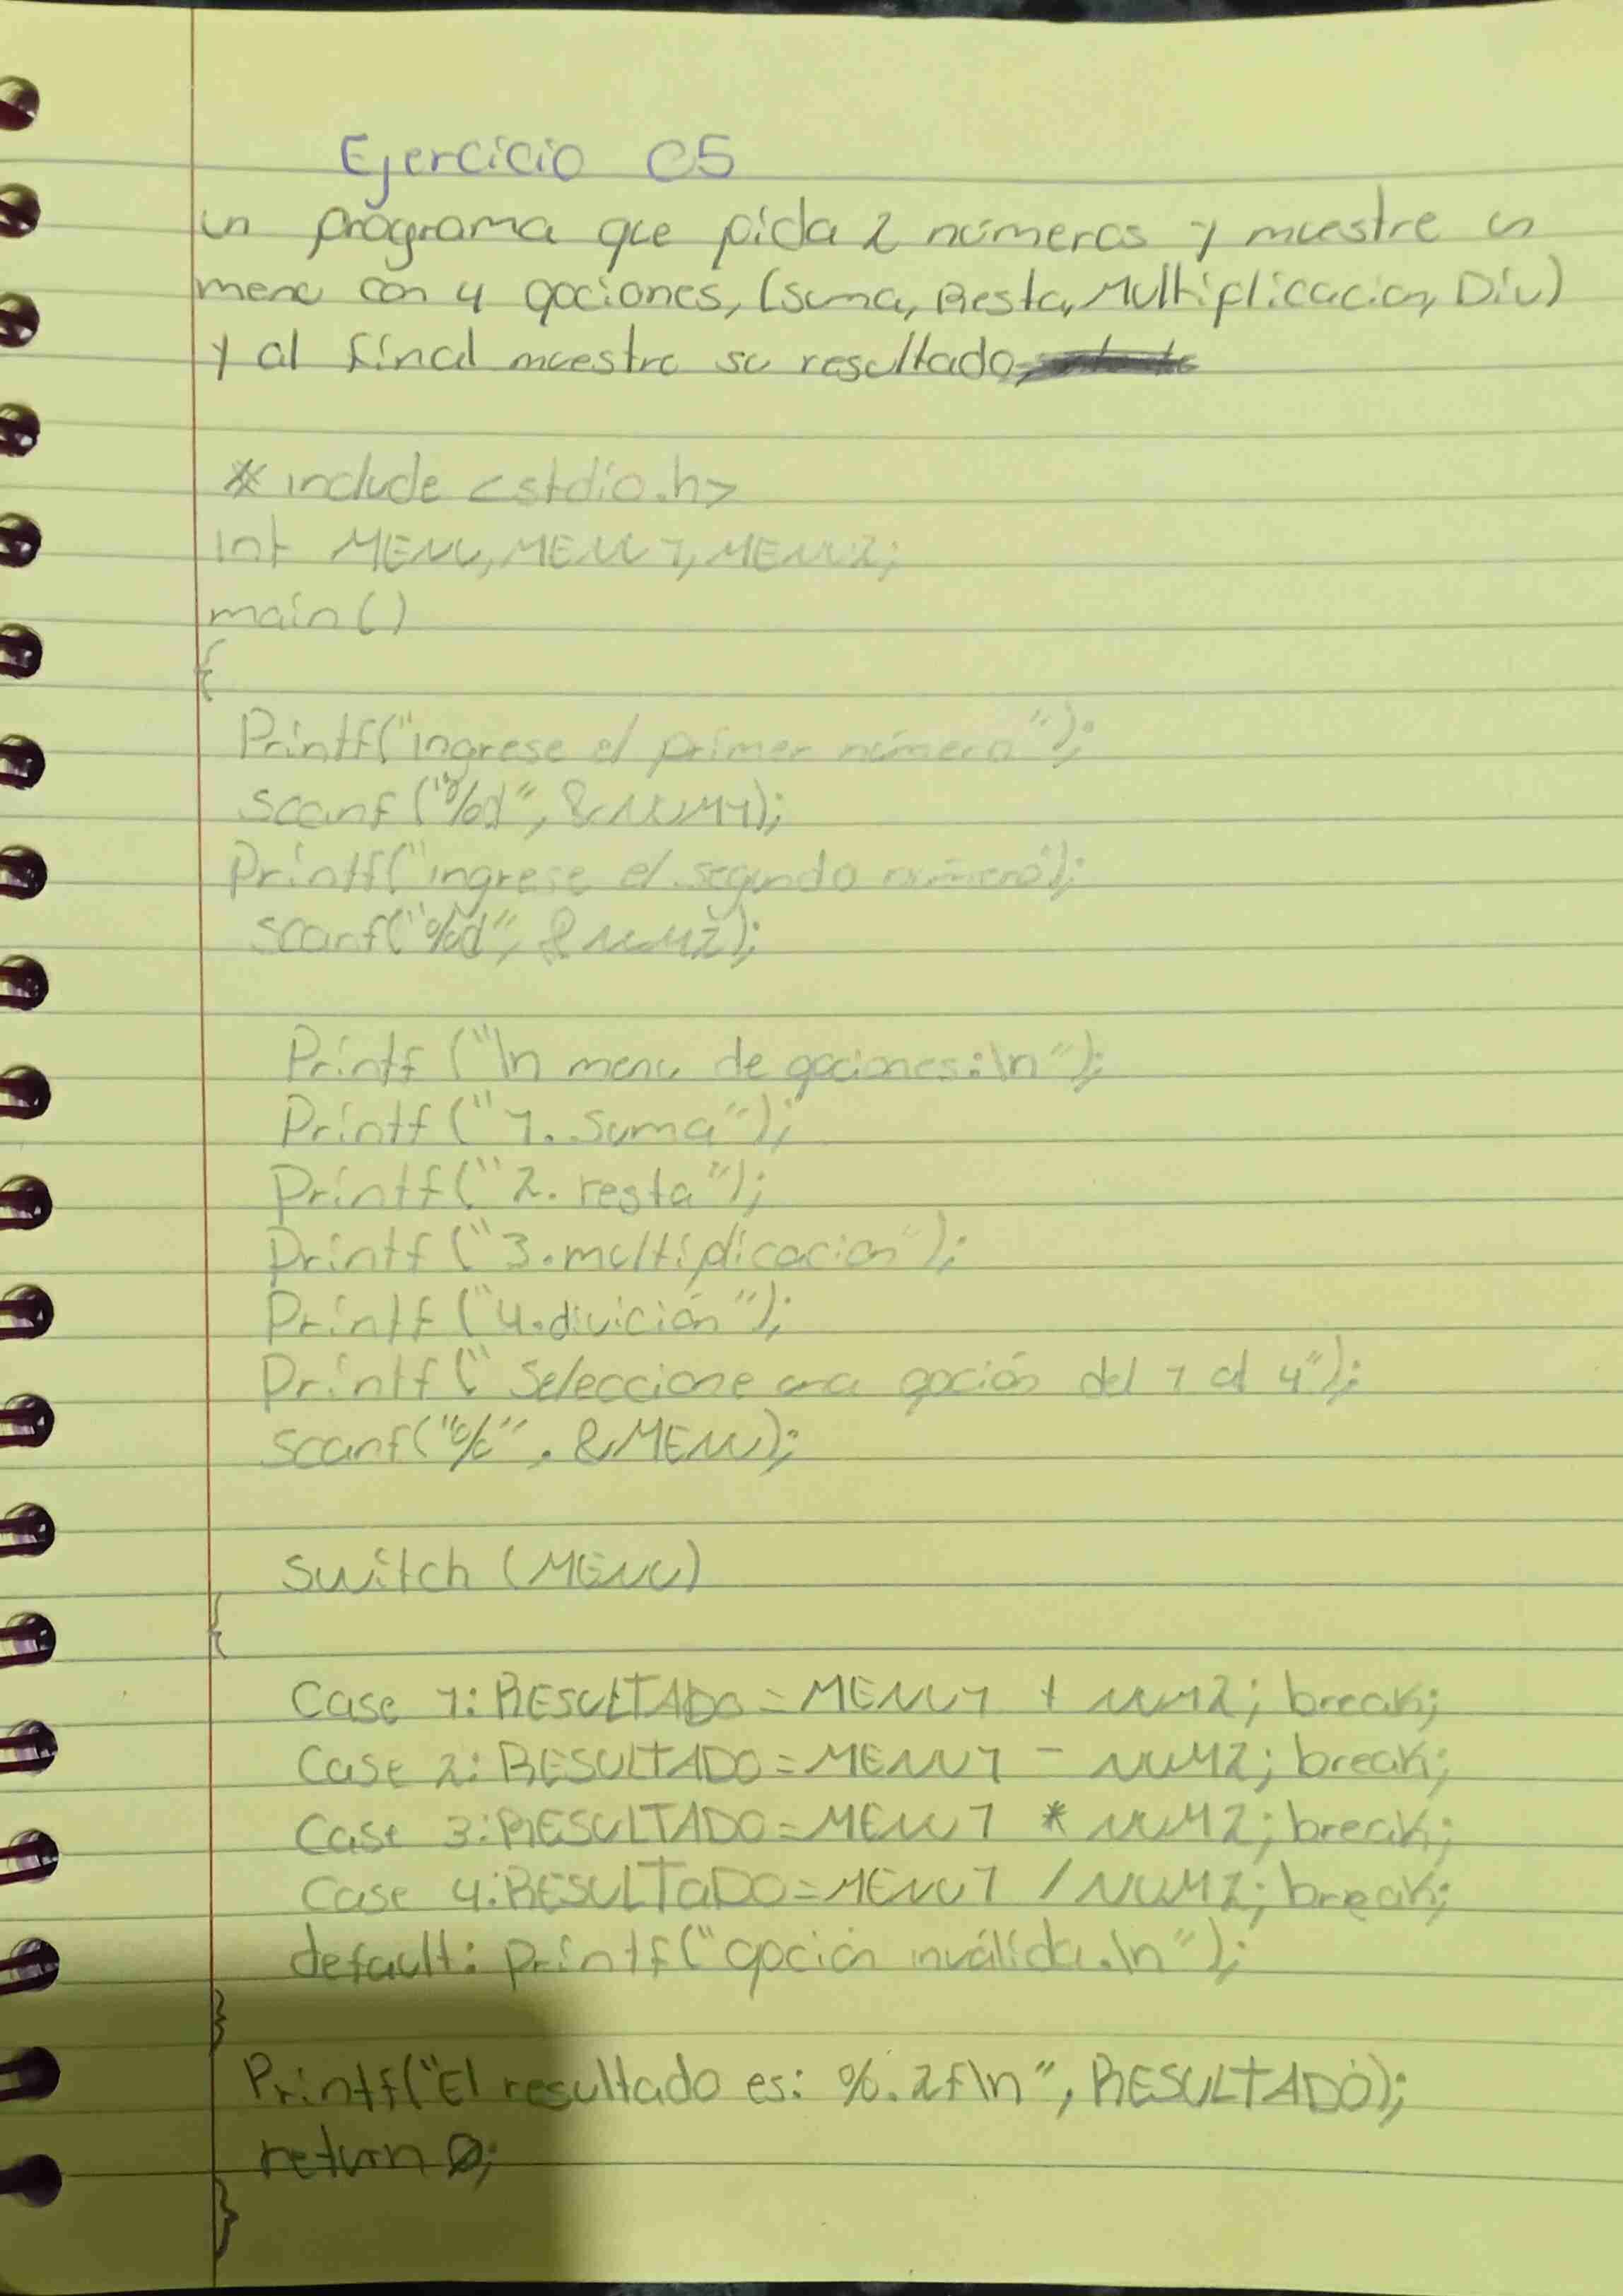 Ejercicio 05
un programa que pida 2 números y muestre un
menu con 4 opciones, (suma, Resta, Multiplicacion, Div)
y al final muestre su resultado
#include <stdio.h>
int MENU, MENU1, MENU2;
main()
{
Printf("ingrese el primer número");
scanf("%d", &NUM1);
Printf("ingrese el segundo número");
scanf("%d", &NUM2);
Printf ("\n menu de opciones:\n");
Printf ("1. Suma");
Printf("2. resta");
Printf ("3.multiplicacion");
Printf ("4.divición");
Printf(" Seleccione una opción del 1 al 4");
scanf( , &MENU);
switch (MENU)
{
Case 1: RESULTADO = MENU1 + NUM2; break;
Case 2: RESULTADO = MENU1 - NUM2; break;
Case 3: RESULTADO = MENU1 * NUM2; break;
Case 4: RESULTaDO = MENU1 / NUM2; break;
default: printf("opción inválida.\n");
}
Printf("El resultado es: %.2f\n", RESULTADO);
return 0;
}